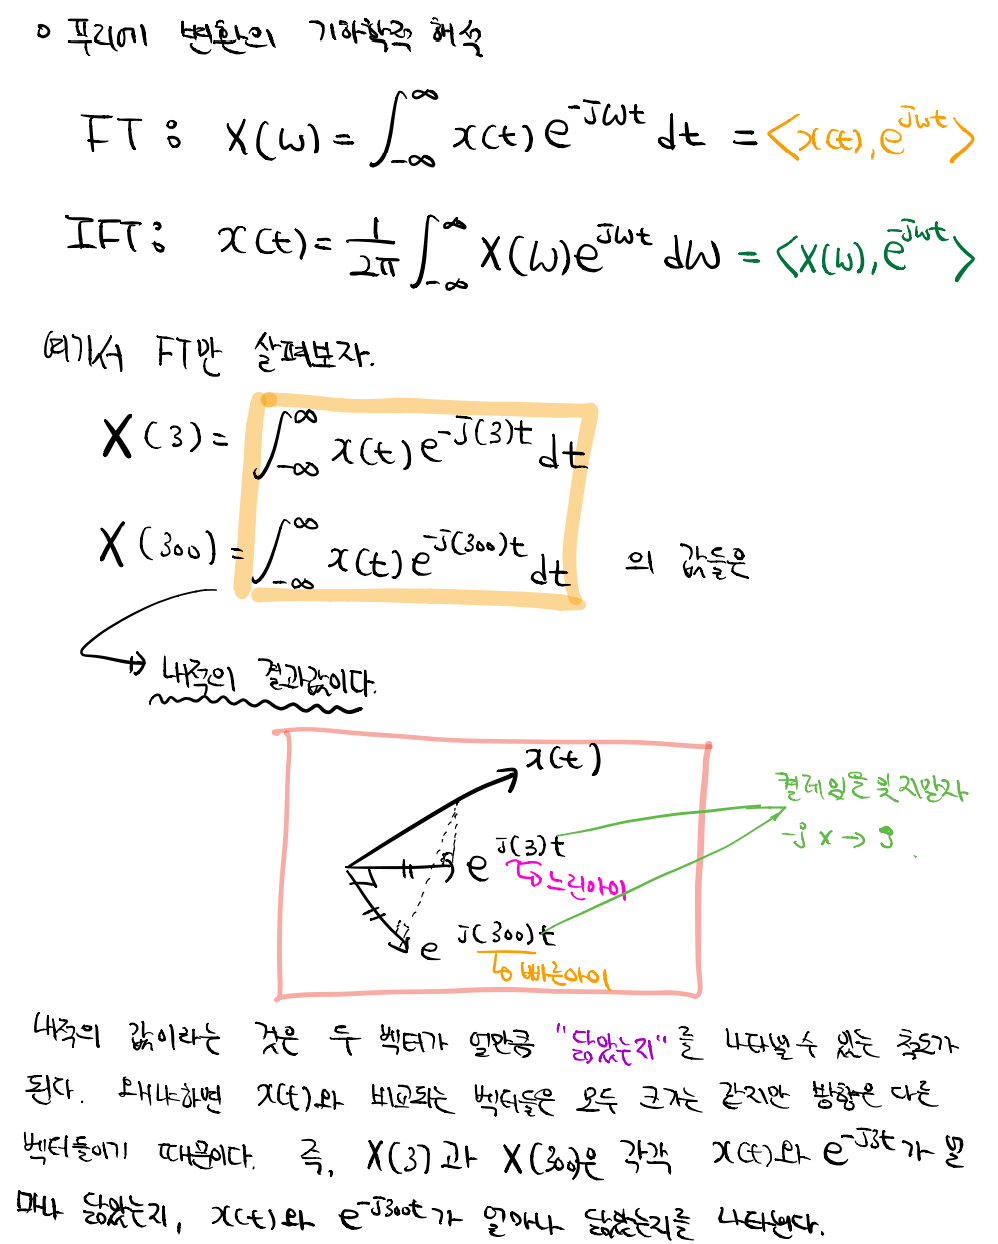 o 푸리에 변환의 기하학적 해석
FT : X(ω) = ∫_{-∞}^{∞} x(t) e^{-jωt} dt = <x(t), e^{jωt}>
IFT : x(t) = 1/2π ∫_{-∞}^{∞} X(ω) e^{jωt} dω = <X(ω), e^{-jωt}>
여기서 FT만 살펴보자.
X(3) = ∫_{-∞}^{∞} x(t) e^{-j(3)t} dt
X(300) = ∫_{-∞}^{∞} x(t) e^{-j(300)t} dt 의 값들은
→ 내적의 결과값이다.
x(t)
켤레임을 잊지말자
-j x → j .
e^{j(3)t}
↳ 느린아이
e^{j(300)t}
↳ 빠른아이
내적의 값이라는 것은 두 벡터가 얼만큼 "닮았는지"를 나타낼 수 있는 척도가
된다. 왜냐하면 x(t)와 비교되는 벡터들은 모두 크기는 같지만 방향은 다른
벡터들이기 때문이다. 즉, X(3)과 X(300)은 각각 x(t)와 e^{-j3t}가 얼
마나 닮았는지, x(t)와 e^{-j300t}가 얼마나 닮았는지를 나타낸다.